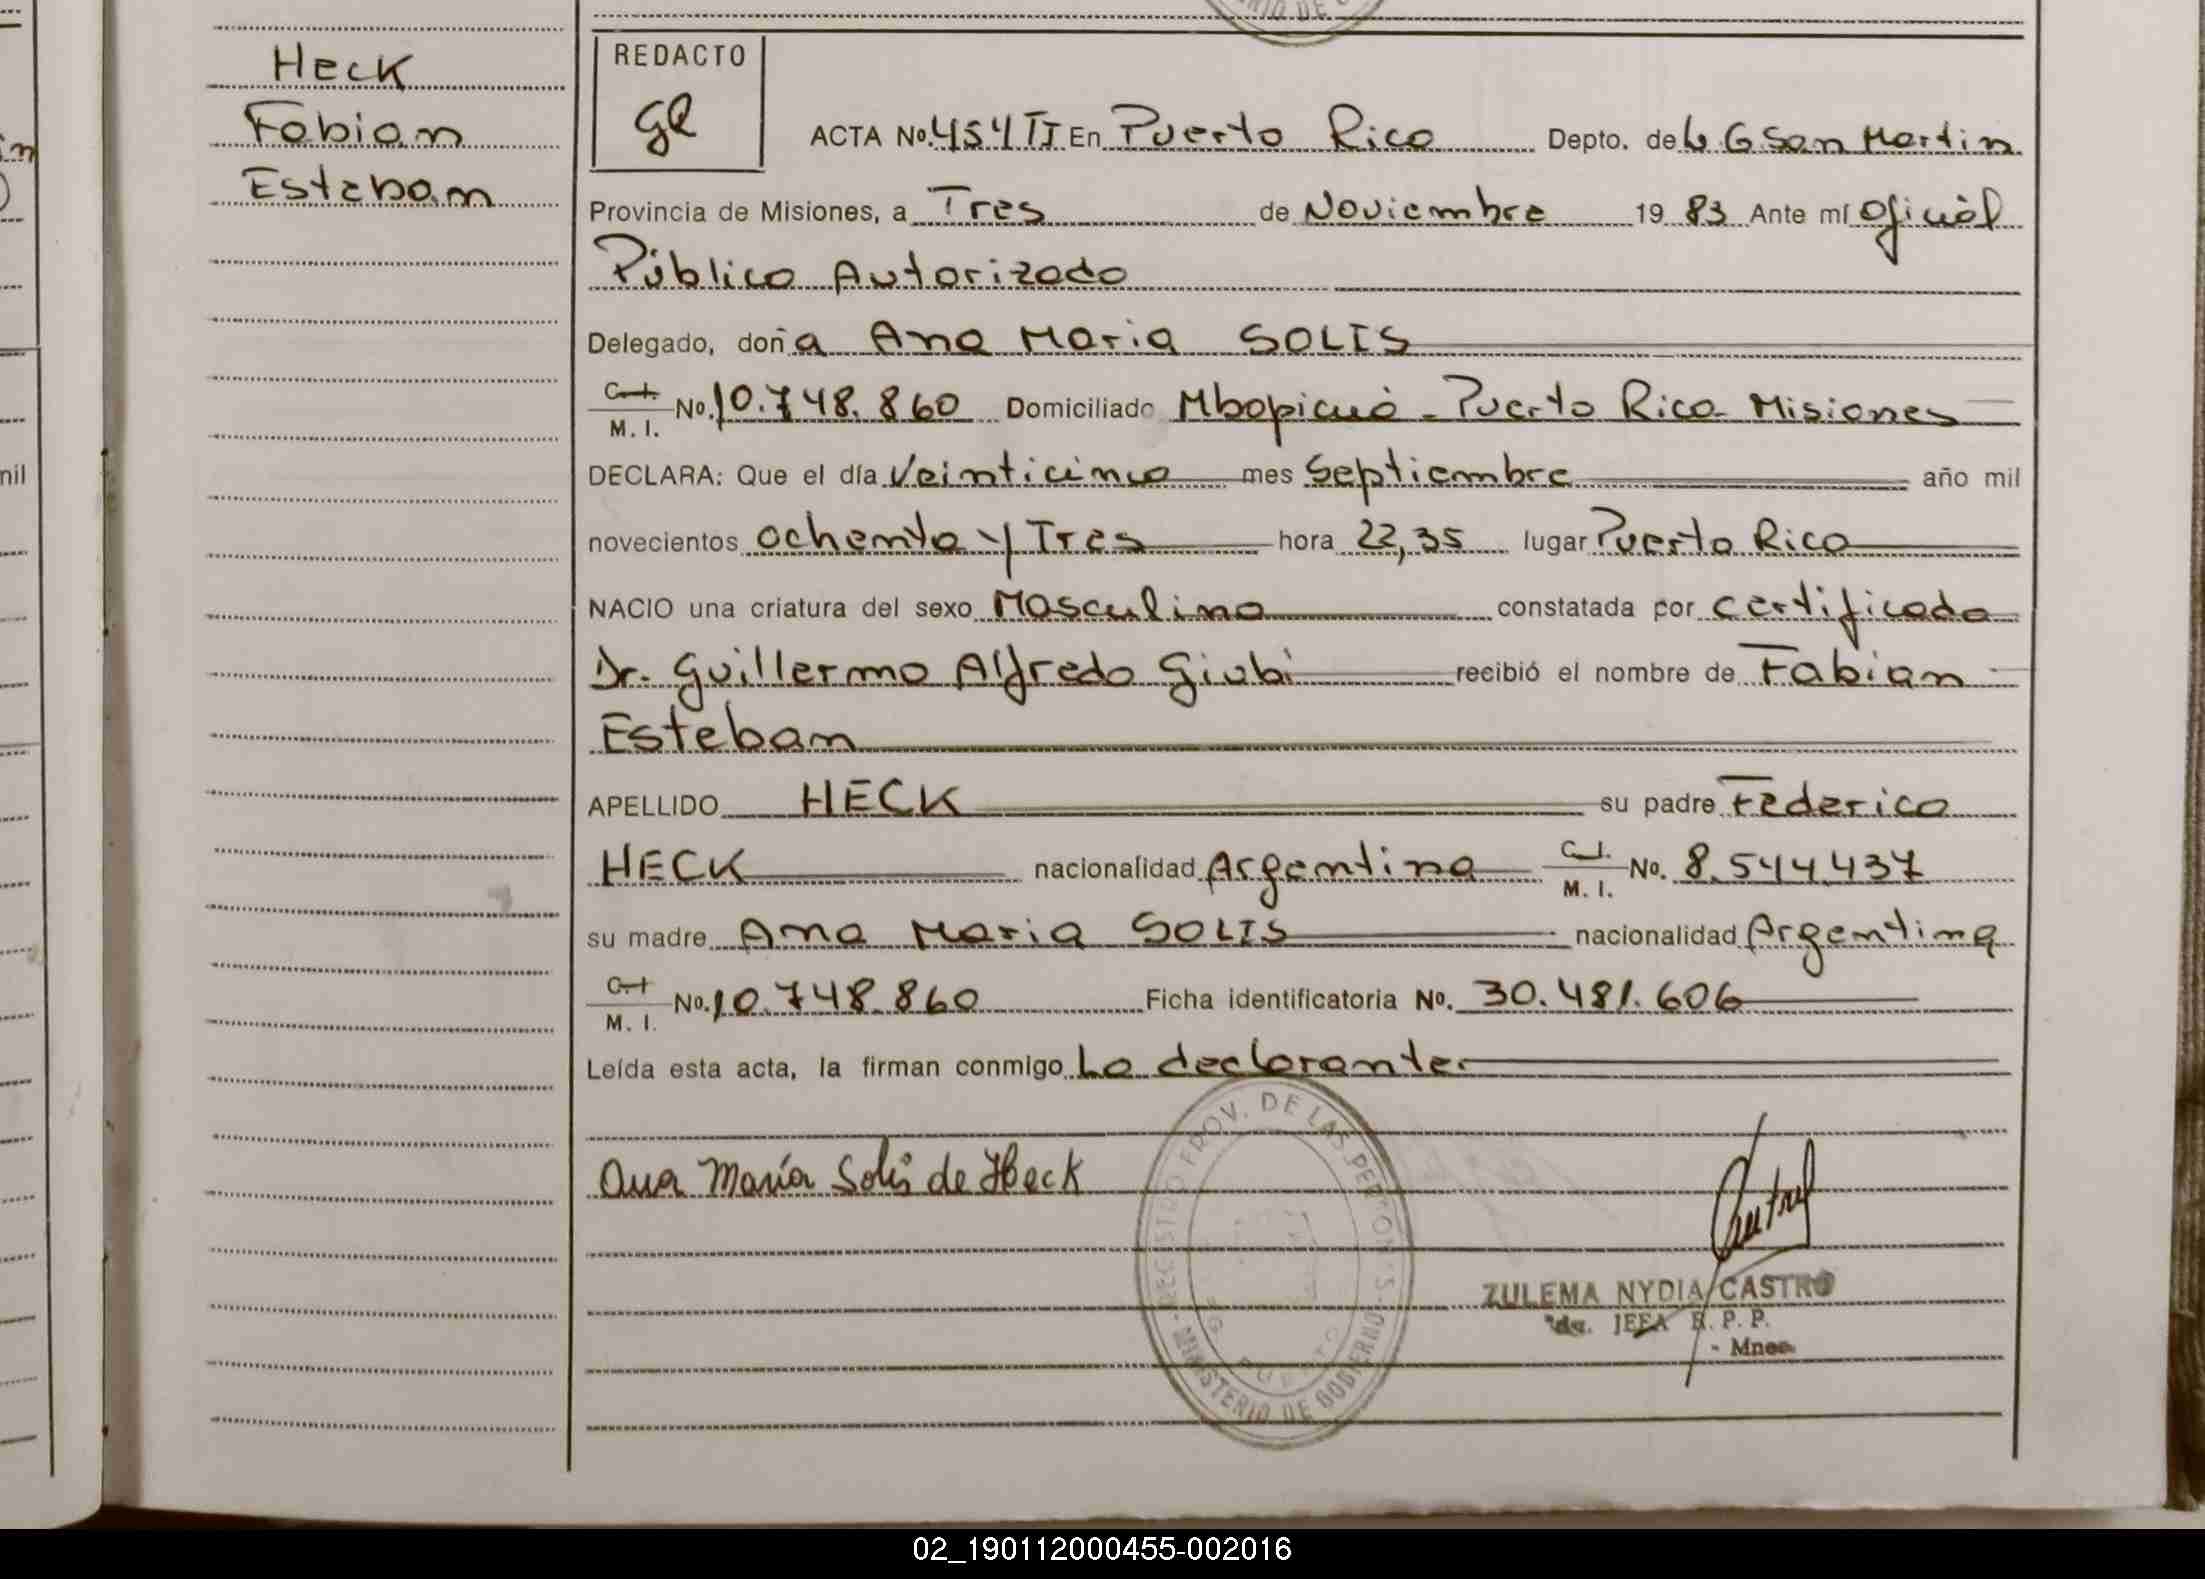 Heck
Fabian
Esteban
REDACTO
ACTA No. 454 TI En Puerto Rico Depto. de L. G. San Martin
Provincia de Misiones, a Tres de Noviembre 1983 Ante mí Oficial
Público Autorizado
Delegado, doña Ana Maria SOLIS
C. I. M. I. No. 10.748.860 Domiciliado Mbopicuá - Puerto Rico - Misiones
DECLARA: Que el día Veinticinco mes Septiembre año mil
novecientos ochenta y Tres hora 22,35 lugar Puerto Rico
NACIO una criatura del sexo Masculino constatada por certificado
Dr. Guillermo Alfredo Giubi recibió el nombre de Fabian
Esteban
APELLIDO HECK su padre Federico
HECK nacionalidad Argentina C. I. M. I. No. 8.544.437
su madre Ana Maria SOLIS nacionalidad Argentina
C. I. M. I. No. 10.748.860 Ficha identificatoria No. 30.481.606
Leída esta acta, la firman conmigo La declarante.
Ana María Solis de Heck
REGISTRO PROV. DE LAS PERSONAS
MINISTERIO DE GOBIERNO
PUERTO
ZULEMA NYDIA CASTRO
JEFA R. P. P.
- Mnes.
nil
02_190112000455-002016